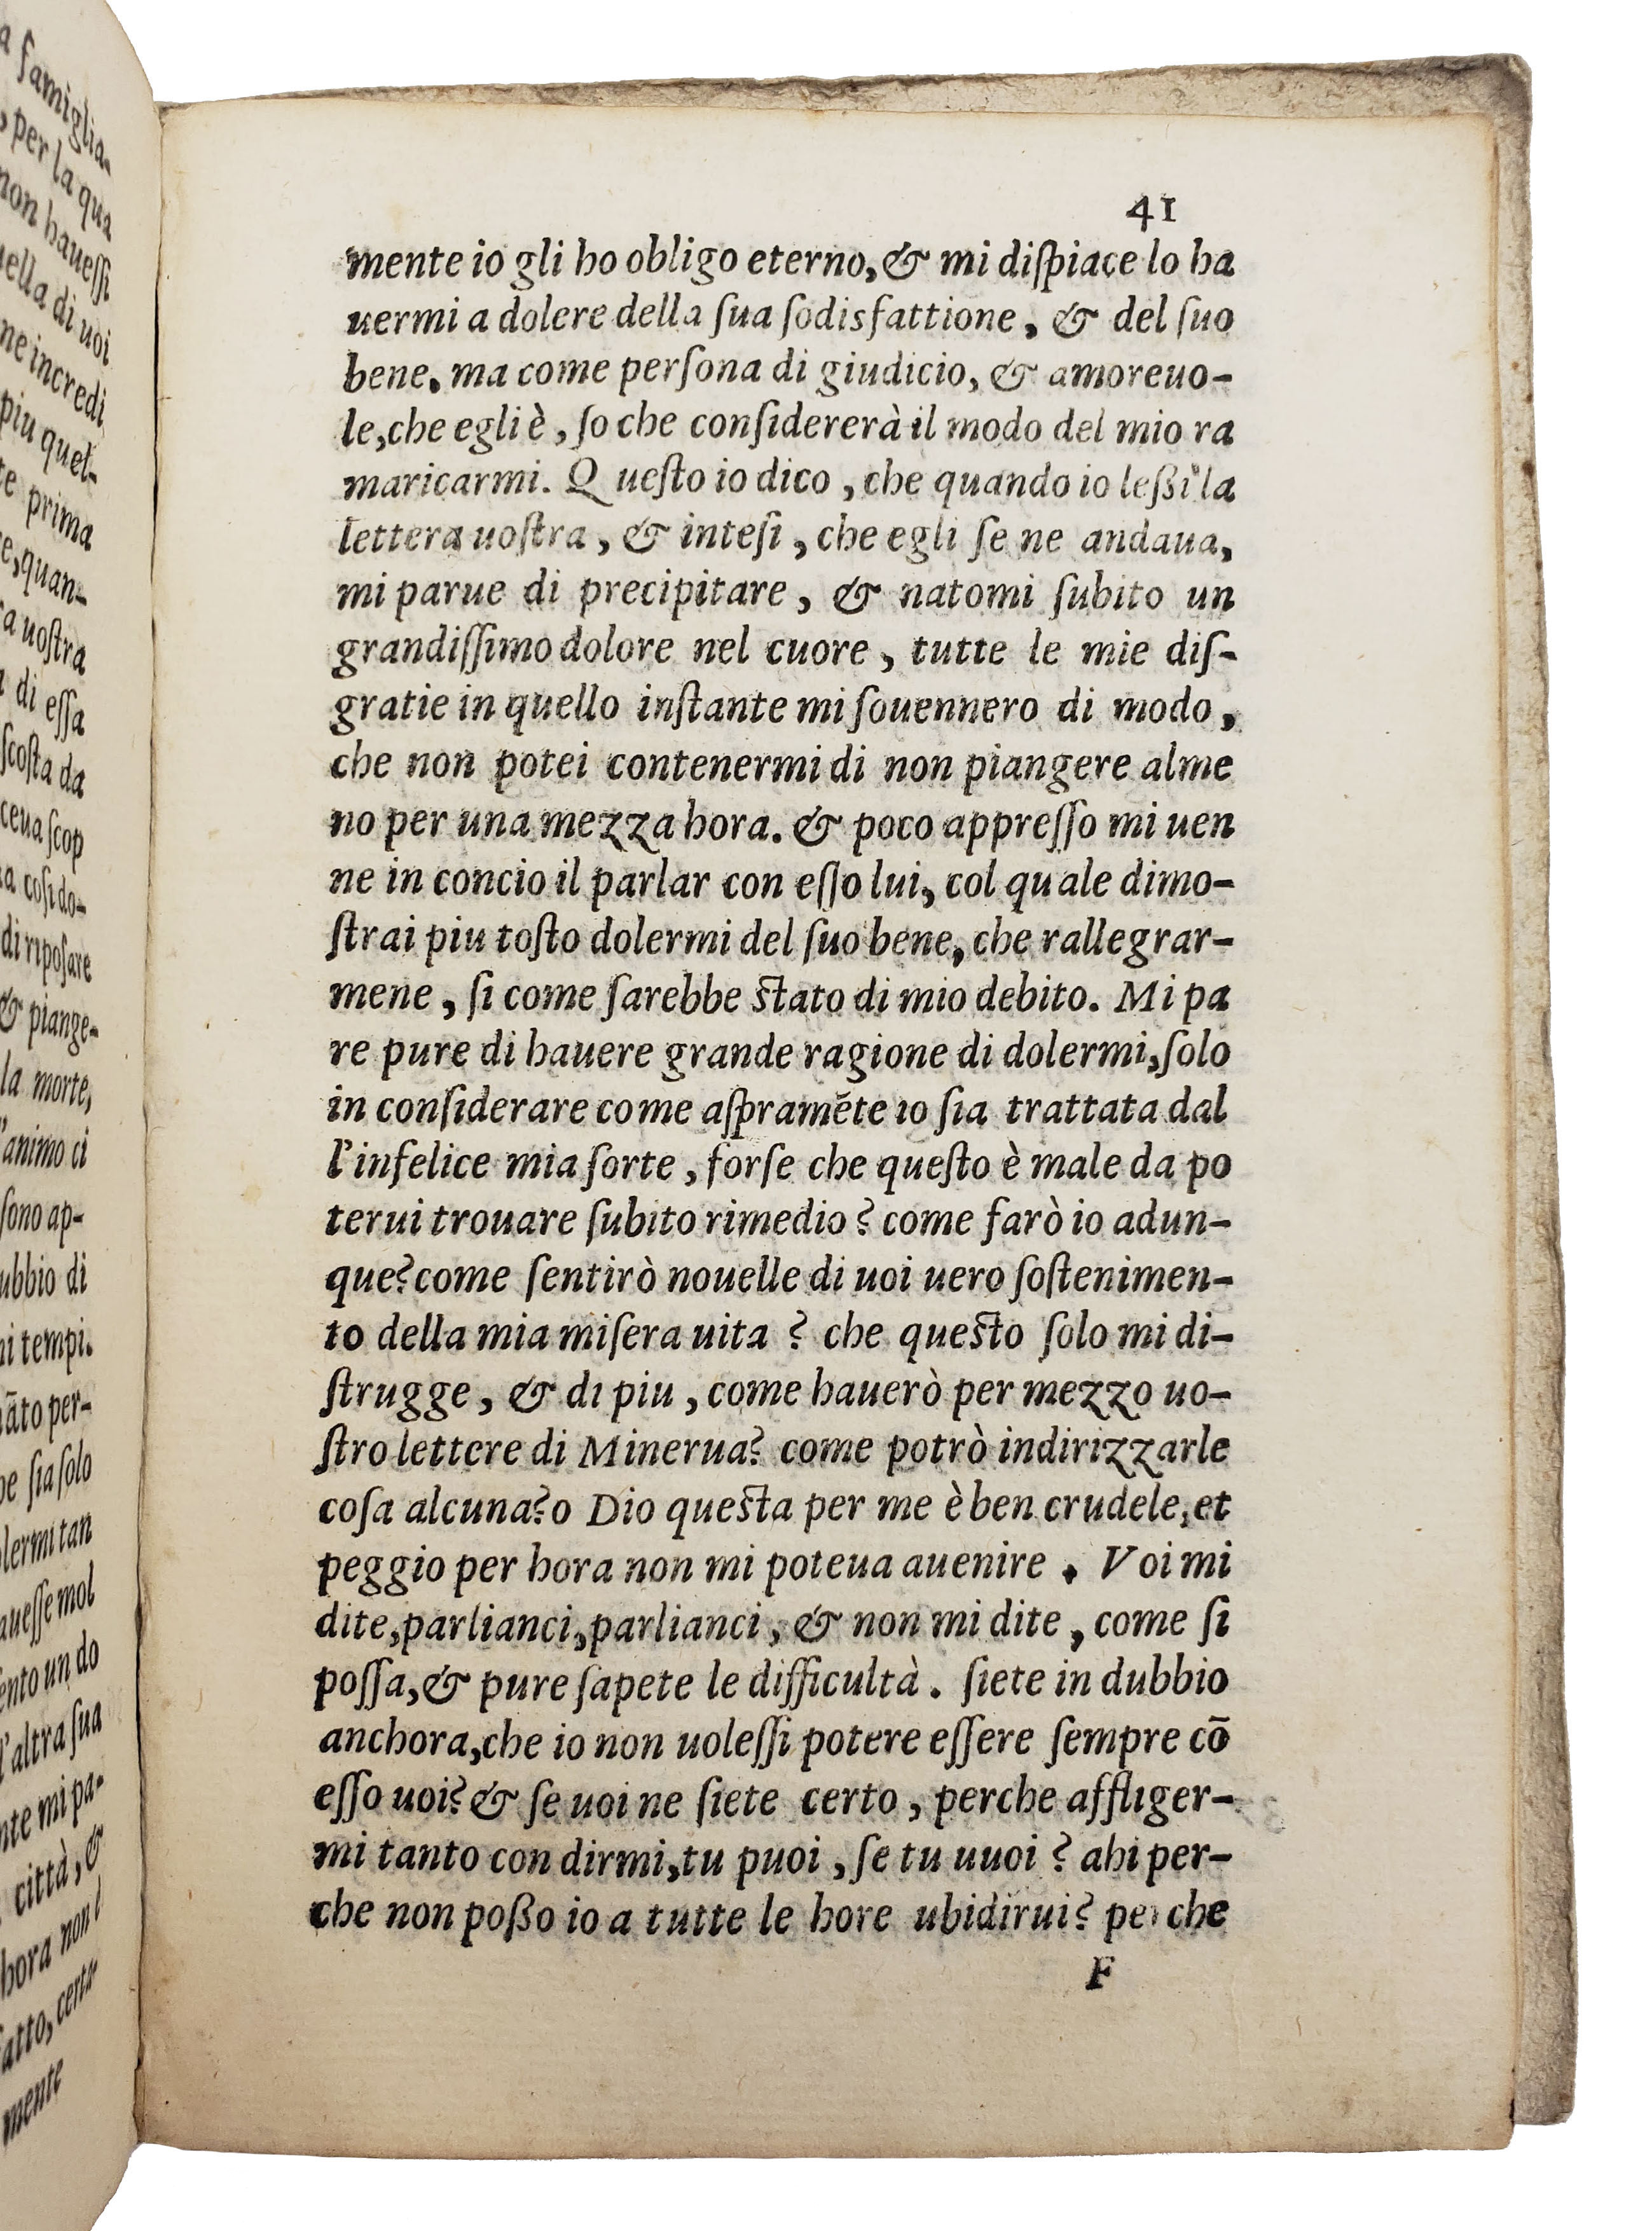 a famiglia-
, per la qua
non haueſſi
uella di uoi
ne incredi
piu quel-
te prima
e, quan-
a uoſtra
di eſſa
ſcoſta da
ceua ſcop
a coſi do-
di ripoſare
& piange-
la morte,
l'animo ci
ſono ap-
ubbio di
i tempi.
āto per-
be ſia ſolo
lermi tan
aueſſe mol
ento un do
l'altra ſua
nte mi pa-
città, &
hora non l
fatto, certa-
mente
41
mente io gli ho obligo eterno, & mi diſpiace lo ha
uermi a dolere della ſua ſodisfattione, & del ſuo
bene. ma come perſona di giudicio, & amoreuo-
le, che egli è, ſo che conſidererà il modo del mio ra
maricarmi. Queſto io dico, che quando io leßi la
lettera uoſtra, & inteſi, che egli ſe ne andaua,
mi parue di precipitare, & natomi ſubito un
grandiſſimo dolore nel cuore, tutte le mie diſ-
gratie in quello inſtante mi ſouennero di modo,
che non potei contenermi di non piangere alme
no per una mezza hora. & poco appreſſo mi uen
ne in concio il parlar con eſſo lui, col quale dimo-
ſtrai piu toſto dolermi del ſuo bene, che rallegrar-
mene, ſi come ſarebbe ſtato di mio debito. Mi pa
re pure di hauere grande ragione di dolermi, ſolo
in conſiderare come aſpramēte io ſia trattata dal
l'infelice mia ſorte, forſe che queſto è male da po
terui trouare ſubito rimedio? come farò io adun-
que? come ſentirò nouelle di uoi uero ſoſtenimen-
to della mia miſera uita? che queſto ſolo mi di-
ſtrugge, & di piu, come hauerò per mezzo uo-
ſtro lettere di Minerua? come potrò indirizzarle
coſa alcuna? o Dio queſta per me è ben crudele, et
peggio per hora non mi poteua auenire. Voi mi
dite, parlianci, parlianci, & non mi dite, come ſi
poſſa, & pure ſapete le difficultà. ſiete in dubbio
anchora, che io non uoleſſi potere eſſere ſempre cō
eſſo uoi? & ſe uoi ne ſiete certo, perche affliger-
mi tanto con dirmi, tu puoi, ſe tu uuoi? ahi per-
che non poßo io a tutte le hore ubidirui? perche
F